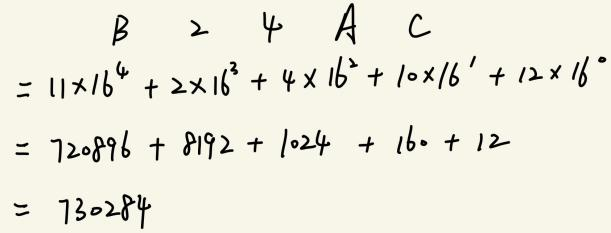 B 2 4 A C
= 11×16⁴ + 2×16³ + 4×16² + 10×16¹ + 12×16⁰
= 720896 + 8192 + 1024 + 160 + 12
= 730284